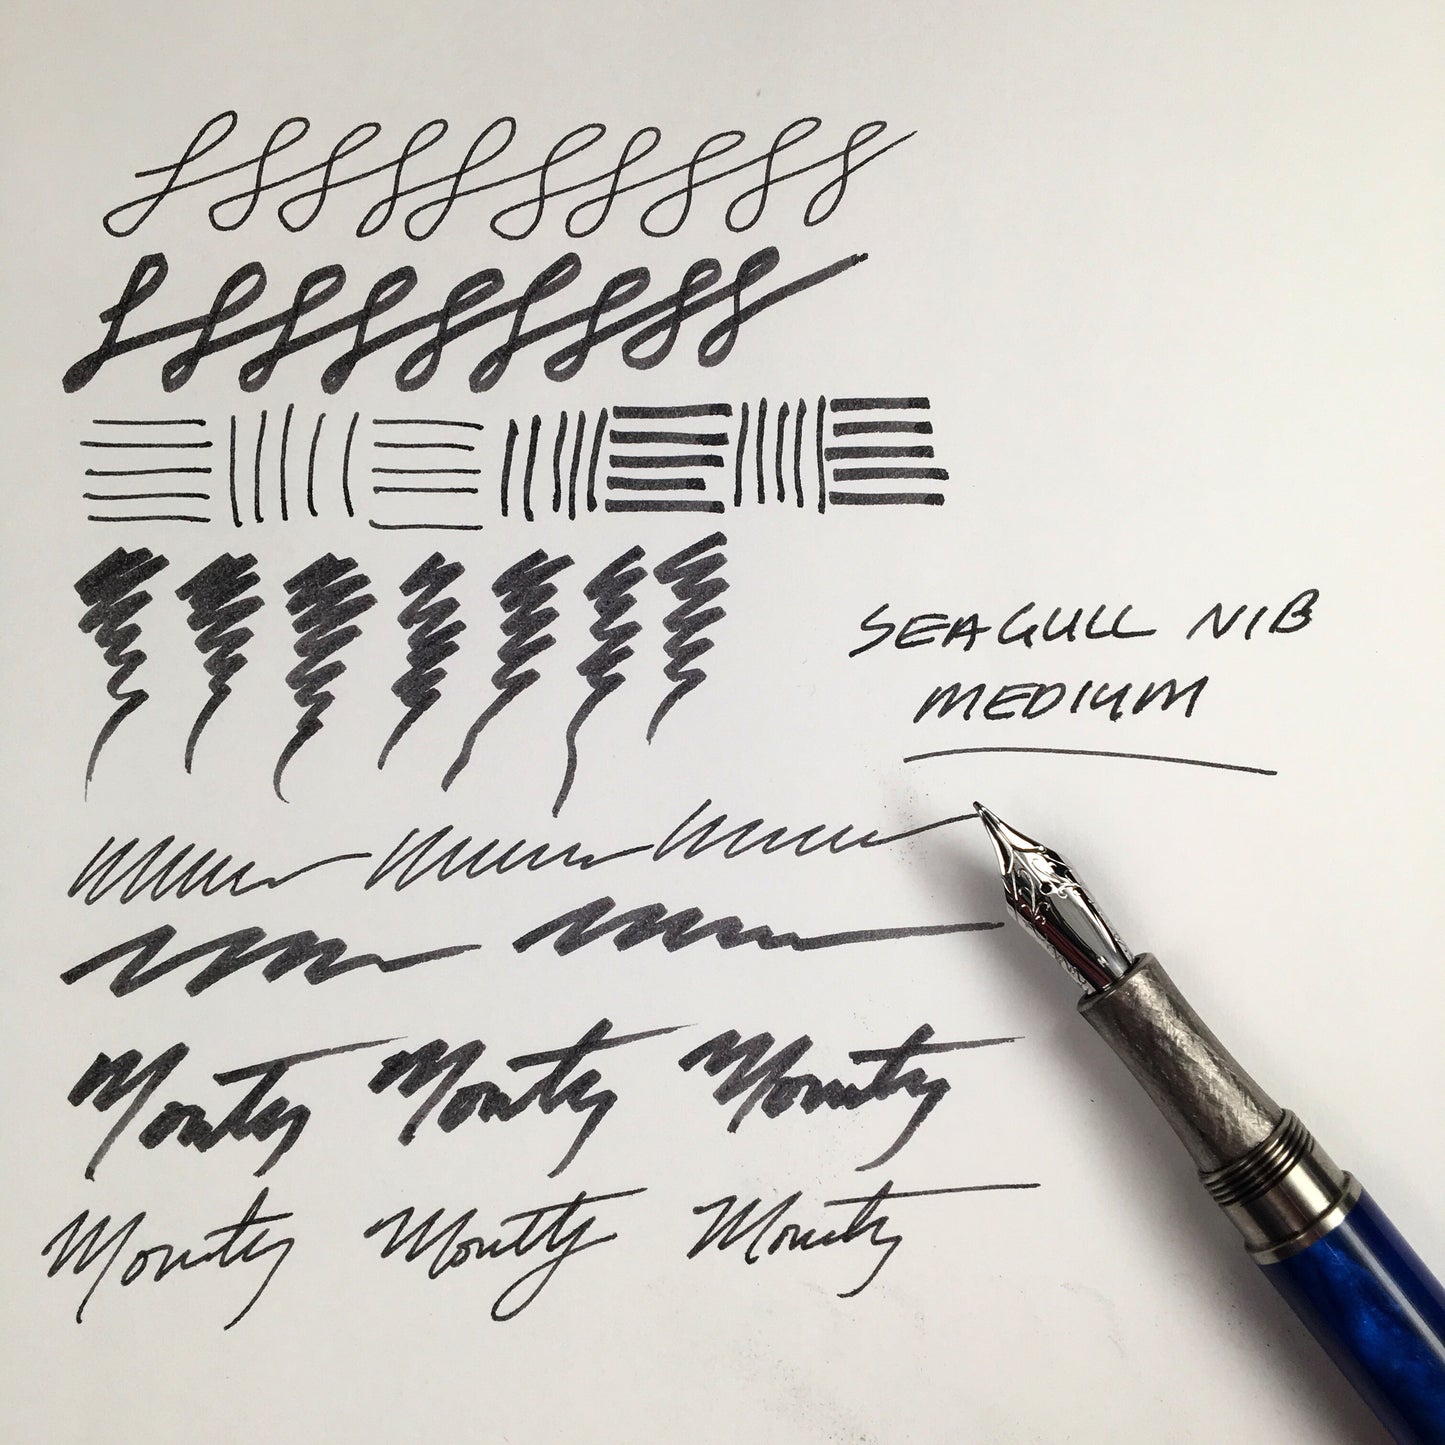 SEAGULL NIB
MEDIUM
Monty Monty Monty
Monty Monty Monty